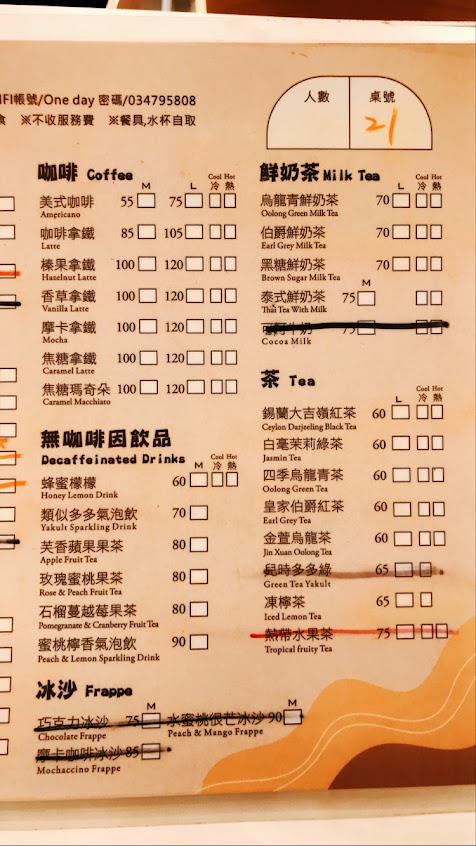 IFI帳號/One day 密碼/034795808
食 ※不收服務費 ※餐具,水杯自取
人數 桌號
21
咖啡 Coffee
M L Cool 冷 Hot 熱
美式咖啡 55 75
Americano
咖啡拿鐵 85 105
Latte
榛果拿鐵 100 120
Hazelnut Latte
香草拿鐵 100 120
Vanilla Latte
摩卡拿鐵 100 120
Mocha
焦糖拿鐵 100 120
Caramel Latte
焦糖瑪奇朵 100 120
Caramel Macchiato
無咖啡因飲品
Decaffeinated Drinks
M Cool 冷 Hot 熱
蜂蜜檸檬 60
Honey Lemon Drink
類似多多氣泡飲 70
Yakult Sparkling Drink
芙香蘋果果茶 80
Apple Fruit Tea
玫瑰蜜桃果茶 80
Rose & Peach Fruit Tea
石榴蔓越莓果茶 80
Pomegranate & Cranberry Fruit Tea
蜜桃檸香氣泡飲 90
Peach & Lemon Sparkling Drink
冰沙 Frappe
M
巧克力冰沙 75
Chocolate Frappe
M
水蜜桃很芒冰沙 90
Peach & Mango Frappe
摩卡咖啡冰沙 85
Mochaccino Frappe
鮮奶茶 Milk Tea
L Cool 冷 Hot 熱
烏龍青鮮奶茶 70
Oolong Green Milk Tea
伯爵鮮奶茶 70
Earl Grey Milk Tea
黑糖鮮奶茶 70
Brown Sugar Milk Tea
M
泰式鮮奶茶 75
Thai Tea With Milk
可可牛奶 75
Cocoa Milk
茶 Tea
L Cool 冷 Hot 熱
錫蘭大吉嶺紅茶 60
Ceylon Darjeeling Black Tea
白毫茉莉綠茶 60
Jasmin Tea
四季烏龍青茶 60
Oolong Green Tea
皇家伯爵紅茶 60
Earl Grey Tea
金萱烏龍茶 60
Jin Xuan Oolong Tea
兒時多多綠 65
Green Tea Yakult
凍檸茶 65
Iced Lemon Tea
熱帶水果茶 75
Tropical fruity Tea